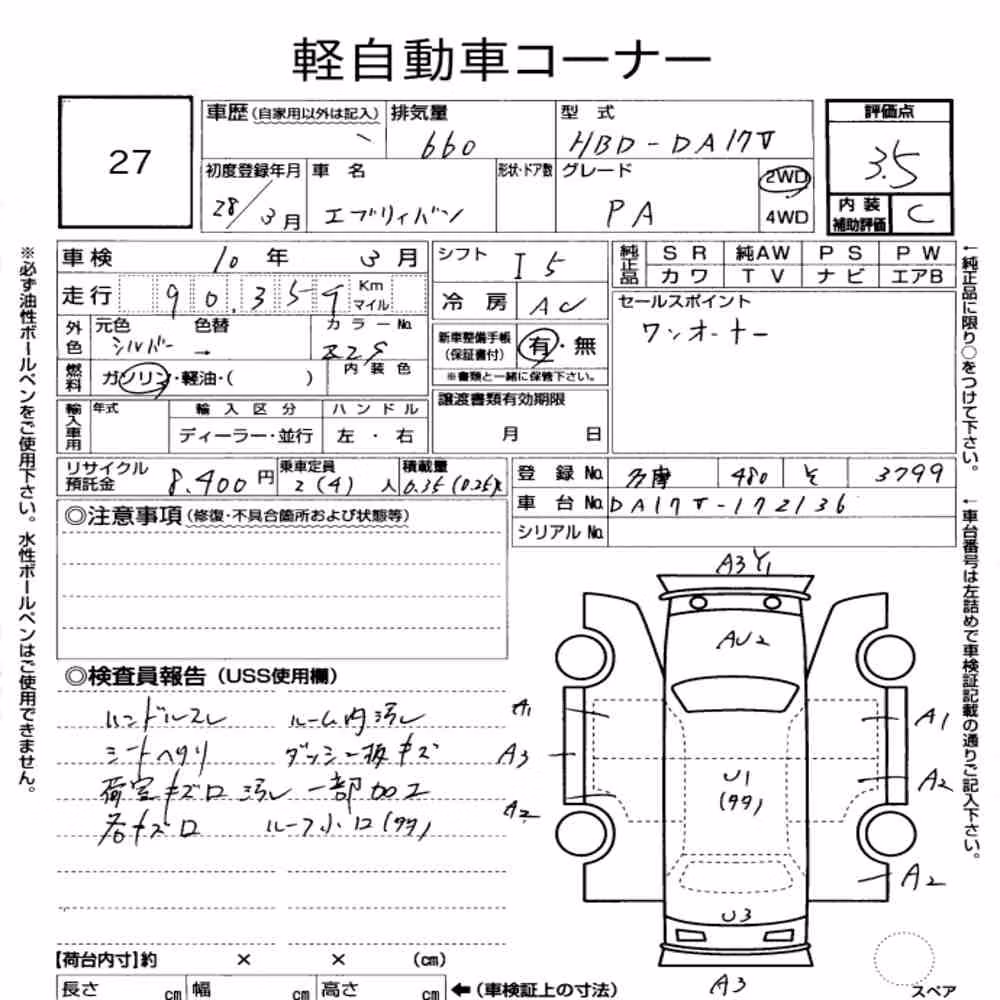 軽自動車コーナー
27
車歴(自家用以外は記入)
排気量
660
型式
HBD-DA17V
評価点
3.5
初度登録年月
28/3月
車名
エブリィバン
形状・ドア数
グレード
PA
2WD
4WD
内装
補助評価
C
車検
10年3月
シフト
I5
純正品
SR 純AW PS PW
カワ TV ナビ エアB
走行
90,359
Km
マイル
冷房
AC
セールスポイント
ワンオーナー
外色
元色
シルバー
色替
→
カラーNo.
Z2S
新車整備手帳
(保証書付)
有・無
※書類と一緒に保管下さい。
燃料
ガソリン・軽油・( )
内装色
輸入車用
年式
輸入区分
ディーラー・並行
ハンドル
左・右
譲渡書類有効期限
月 日
リサイクル
預託金
8,400円
乗車定員
2(4)人
積載量
0.35(0.25)t
登録No.
多摩 480 そ 3799
車台No.
DA17V-172136
シリアルNo.
◎注意事項(修復・不具合箇所および状態等)
◎検査員報告(USS使用欄)
ハンドルスレ ルーム内汚レ
シートヘタリ ダッシュ板キズ
荷室キズ口 汚レ 一部加工
各キズ口 ルーフ小口(タタ)
A3Y1
AU2
A1
A3
A2
U1
(タタ)
A1
A2
A2
U3
A3
【荷台内寸】約 × × (cm)
長さ cm 幅 cm 高さ cm
←(車検証上の寸法)
スペア
※必ず油性ボールペンをご使用下さい。水性ボールペンはご使用できません。
←純正品に限り○をつけて下さい。
←車台番号は左詰めで車検証記載の通りご記入下さい。